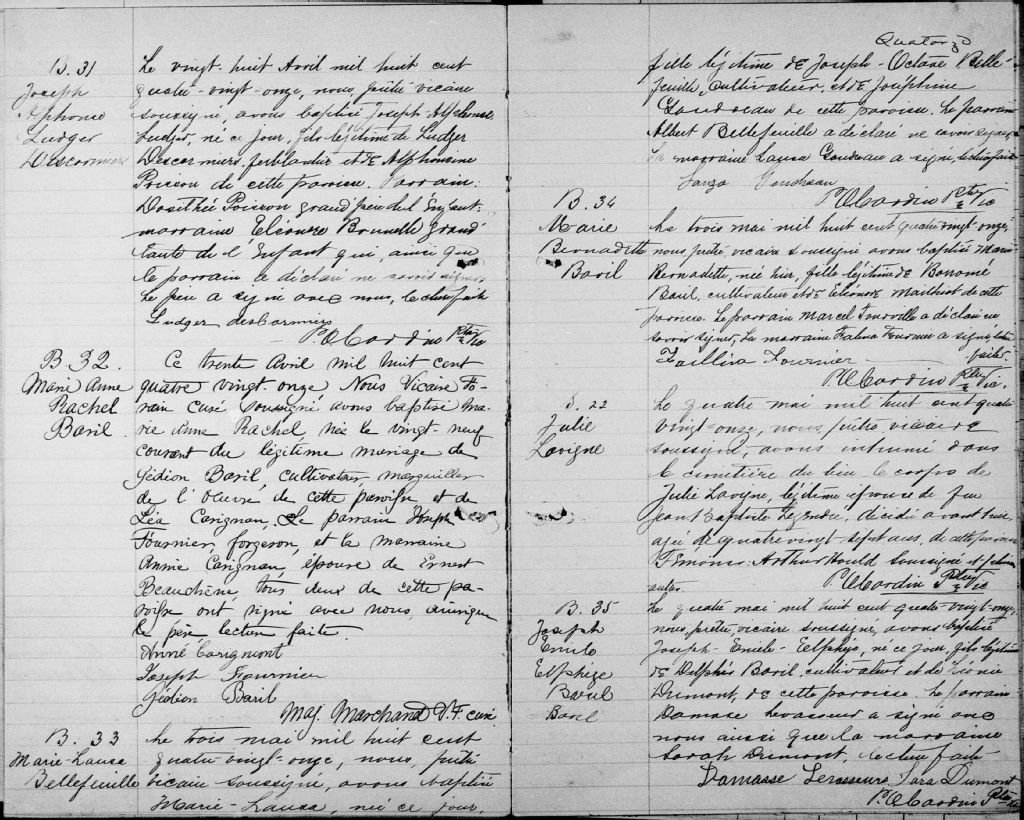 B. 31
Joseph
Alphonse
Ludger
Descormiers
Le vingt-huit Avril mil huit cent
quatre-vingt-onze, nous, prêtre vicaire
soussigné, avons baptisé Joseph Alphonse
Ludger, né ce jour, fils légitime de Ludger
Descormiers, ferblantier et de Alphonsine
Poisson de cette paroisse. Parrain:
Dosithée Poisson grand père de l'Enfant:
marraine Eléonore Brunelle grand
tante de l'Enfant qui, ainsi que
le parrain a déclaré ne savoir signer.
Le père a signé avec nous, lecture faite
Ludger descormiers
P. O. Cardin Ptre Vic
B. 32.
Marie Anne
Rachel
Baril.
Ce trente Avril mil huit cent
quatre vingt-onze Nous Vicaire Fo-
rain curé soussigné avons baptisé Ma-
rie Anne Rachel, née le vingt-neuf
courant du légitime mariage de
Gédion Baril, cultivateur, marguiller
de l'Oeuvre de cette paroisse et de
Léa Carignan. Le parrain Joseph
Fournier, forgeron, et la marraine
Annie Carignan, épouse de Ernest
Beauchène, tous deux de cette pa-
roisse ont signé avec nous, ainsi que
le père lecture faite.
Anné Carignont
Joseph Fournier
Gédion Baril
Maj. Marchand V. F. curé
B. 33
Marie-Lausa
Bellefeuille
Le trois mai mil huit cent
quatre vingt-onze, nous, prêtre
vicaire soussigné, avons baptisé
Marie-Lausa, née ce jour,
Quatorze
fille légitime de Joseph-Octave Belle-
feuille, cultivateur, et de Joséphine
Gaudreau de cette paroisse. Le parrain
Albert Bellefeuille a déclaré ne savoir signer
La marraine Lausa Gaudreau a signé, lecture faite
Lauza Goudreau
P. O. Cardin Ptre Vic
B. 34
Marie
Bernadette
Baril
Le trois mai mil huit cent quatre vingt-onze,
nous, prêtre, vicaire soussigné avons baptisé Marie
Bernadette, née hier, fille légitime de Borromé
Baril, cultivateur et de Eléonore Mailhiot de cette
paroisse. Le parrain Marcel Tourville a déclaré ne
savoir signer, La marraine Fournier a signé, lecture
faite.
Fournier
P. O. Cardin Ptre Vic.
S. 22
Julie
Lavigne
Le quatre mai mil huit cent quatre
vingt-onze, nous, prêtre vicaire
soussigné, avons inhumé dans
le cimetière du lieu le corps de
Julie Lavigne, légitime épouse de feu
Jean Baptiste Legendre, décédée avant hier,
agée de quatre vingt sept ans, de cette paroisse
Témoins: Arthur Hould soussigné et plusieurs
autres.
P. O. Cardin Ptre Vic
B. 35
Joseph
Emile
Elphège
Baril
Baril
Le quatre mai mil huit cent quatre-vingt-onze,
nous, prêtre, vicaire soussigné, avons baptisé
Joseph-Emile-Elphège, né ce jour, fils légitime
de Delphis Baril, cultivateur et de
Dumont, de cette paroisse. Le parrain
Damase Levasseur a signé avec
nous ainsi que la marraine
Sarah Dumont, lecture faite
Damasse Levasseure Sara Dumont
P. O. Cardin Ptre Vic